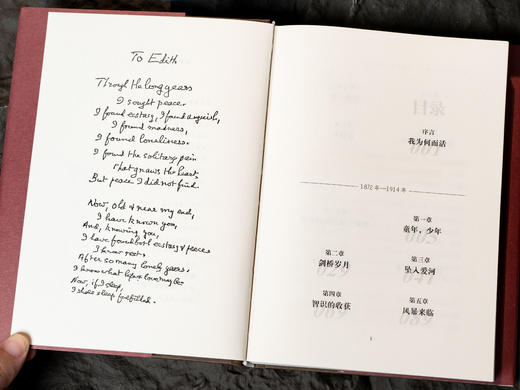 To Edith
Through the long years
I sought peace.
I found ecstasy, I found anguish,
I found madness,
I found loneliness.
I found the solitary pain
that gnaws the heart,
But peace I did not find.
Now, old & near my end,
I have known you,
And, knowing you,
I have found both ecstasy & peace.
I know rest.
After so many lonely years,
I know what life & love may be.
Now, if I sleep,
I shall sleep fulfilled.
目录
序言
我为何而活
1872年—1914年
第一章
童年，少年
第二章
剑桥岁月
029
第三章
坠入爱河
041
第四章
智识的收获
第五章
风暴来临
089
1